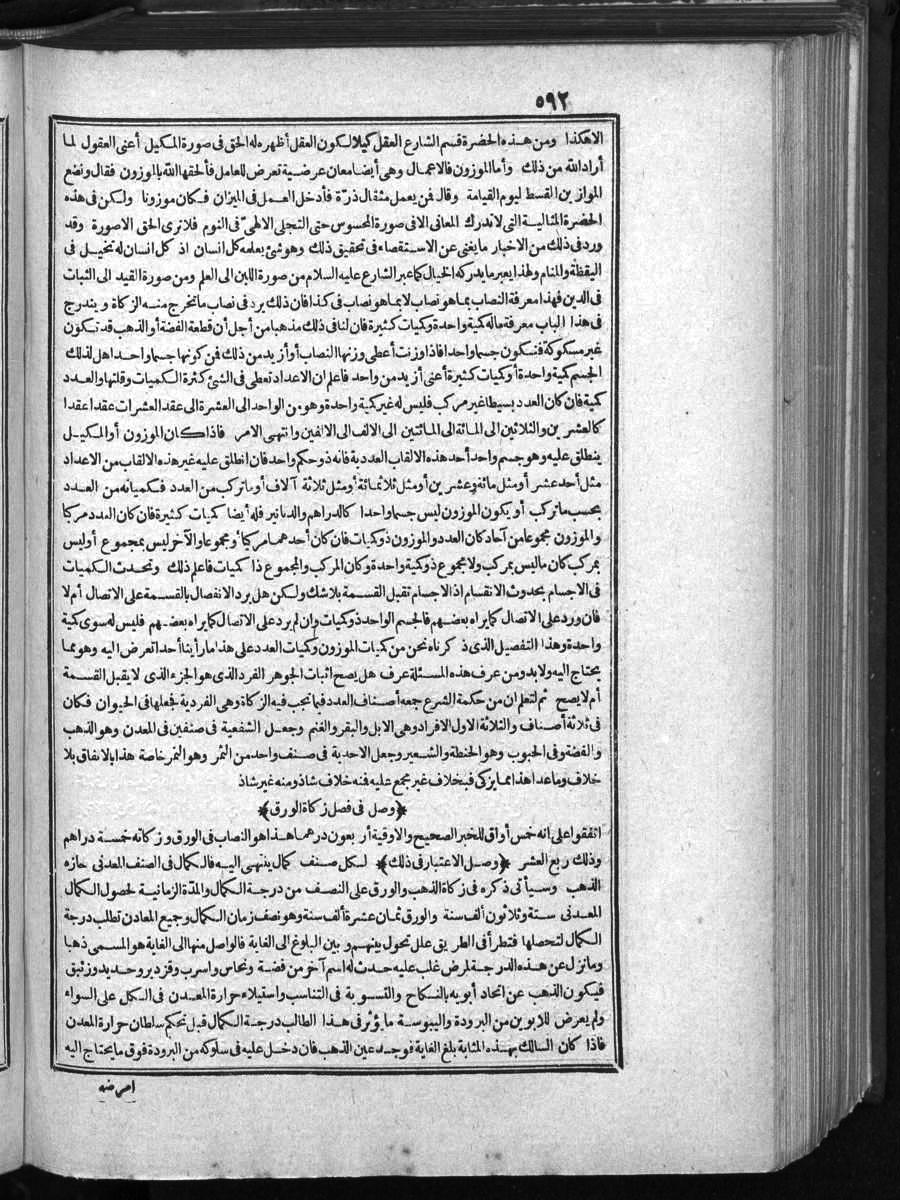 ٥٩٢
الاهكذا ومن هذه الحضرة قسم الشارع العقل كيلا لكون العقل أظهره له الحق فى صورة المكيل أعنى العقول لما
أراد الله من ذلك وأما الموزون فالاعمال وهى أيضا معان عرضية تعرض للعامل فألحقها الله بالموزون فقال ونضع
الموازين القسط ليوم القيامة وقال فمن يعمل مثقال ذرّة فأدخل العمل فى الميزان فكان موزونا ولكن فى هذه
الحضرة المثالية التى لاتدرك المعانى الافى صورة المحسوس حتى التجلى الالهىّ فى النوم فلاترى الحق الاصورة وقد
ورد فى ذلك من الاخبار مايغنى عن الاستقصاء فى تحقيق ذلك وهو شئ يعلمه كل انسان اذ كل انسان له تخيل فى
اليقظة والمنام ولهذا يعبر مايدركه الخيال كما عبر الشارع عليه السلام من صورة اللبن الى العلم ومن صورة القيد الى الثبات
فى الدين فهذا معرفة النصاب بما هو نصاب لابما هو نصاب فى كذا فان ذلك يرد فى نصاب ماتخرج منه الزكاة ويندرج
فى هذا الباب معرفة ماله كمية واحدة وكميات كثيرة فان لنا فى ذلك مذهبا من أجل أن قطعة الفضة أو الذهب قد تكون
غير مسكوكة فتكون جسما واحدا فاذا وزنت أعطى وزنها النصاب أو أزيد من ذلك فمن كونها جسما واحدا هل لذلك
الجسم كمية واحدة أو كميات كثيرة أعنى أزيد من واحد فاعلم ان الاعداد تعطى فى الشئ كثرة الكميات وقلتها والعدد
كمية فان كان العدد بسيطا غير مركب فليس له غير كمية واحدة وهو من الواحد الى العشرة الى عقد العشرات عقدا عقدا
كالعشرين والثلاثين الى المائة الى المائتين الى الالف الى الالفين وانتهى الامر فاذا كان الموزون أو المكيل
ينطلق عليه وهو جسم واحد أحد هذه الالقاب العددية فانه ذو حكم واحد فان انطلق عليه غير هذه الالقاب من الاعداد
مثل أحد عشر أو مثل مائة وعشرين أو مثل ثلثمائة أو مثل ثلاثة آلاف أو ماتركب من العدد فكمياته من العدد
بحسب ماتركب أو يكون الموزون ليس جسما واحدا كالدراهم والدنانير فله أيضا كميات كثيرة فان كان العدد مركبا
والموزون مجموعا من آحاد كان العدد والموزون ذو كميات فان كان أحدهما مركبا أو مجموعا والآخر ليس بمجموع أوليس
بمركب كان ماليس بمركب ولا مجموع ذو كمية واحدة وكان المركب والمجموع ذا كميات فاعلم ذلك وتحدث الكميات
فى الاجسام بحدوث الانقسام اذ الاجسام تقبل القسمة بلاشك ولكن هل يرد الانفصال بالقسمة على الاتصال أم لا
فان ورد على الاتصال كما يراه بعضهم فالجسم الواحد ذو كميات وان لم يرد على الاتصال كما يراه بعضهم فليس له سوى كمية
واحدة وهذا التفصيل الذى ذكرناه نحن من كميات الموزون وكميات العدد على هذا مارأينا أحدا تعرض اليه وهو مما
يحتاج اليه ولابد ومن عرف هذه المسئلة عرف هل يصح اثبات الجوهر الفرد الذى هو الجزء الذى لايقبل القسمة
أم لايصح ثم لتعلم ان من حكمة الشرع جمعه أصناف العدد فيما تجب فيه الزكاة وهى الفردية فجعلها فى الحيوان فكان
فى ثلاثة أصناف والثلاثة الاول الافراد وهى الابل والبقر والغنم وجعل الشفعية فى صنفين فى المعدن وهو الذهب
والفضة وفى الحبوب وهو الحنطة والشعير وجعل الاحدية فى صنف واحد من الثمر وهو التمر خاصة هذا بالاتفاق بلا
خلاف وماعدا هذا مما يزكى فبخلاف غير مجمع عليه فمنه خلاف شاذ ومنه غير شاذ
﴿وصل فى فصل زكاة الورق﴾
اتفقوا على انه خمس أواق للخبر الصحيح والاوقية أربعون درهما هذا هو النصاب فى الورق وزكاته خمسة دراهم
وذلك ربع العشر ﴿وصل الاعتبار فى ذلك﴾ لكل صنف كمال ينتهى اليه فالكمال فى الصنف المعدنى حازه
الذهب وسيأتى ذكره فى زكاة الذهب والورق على النصف من درجة الكمال والمدّة الزمانية لحصول الكمال
المعدنى ستة وثلاثون ألف سنة والورق ثمان عشرة ألف سنة وهو نصف زمان الكمال وجميع المعادن تطلب درجة
الكمال لتحصلها فتطرأ فى الطريق علل تحول بينهم وبين البلوغ الى الغاية فالواصل منها الى الغاية هو المسمى ذهبا
ومانزل عن هذه الدرجة لمرض غلب عليه حدث له اسم آخر من فضة ونحاس واسرب وقزدير وحديد وزئبق
فيكون الذهب عن اتحاد أبويه بالنكاح والتسوية فى التناسب واستيلاء حرارة المعدن فى الكل على السواء
ولم يعرض للابوين من البرودة واليبوسة مايؤثر فى هذا الطالب درجة الكمال قبل تحكم سلطان حرارة المعدن
فاذا كان السالك بهذه المثابة بلغ الغاية فوجد عين الذهب فان دخل عليه فى سلوكه من البرودة فوق مايحتاج اليه
امرضه